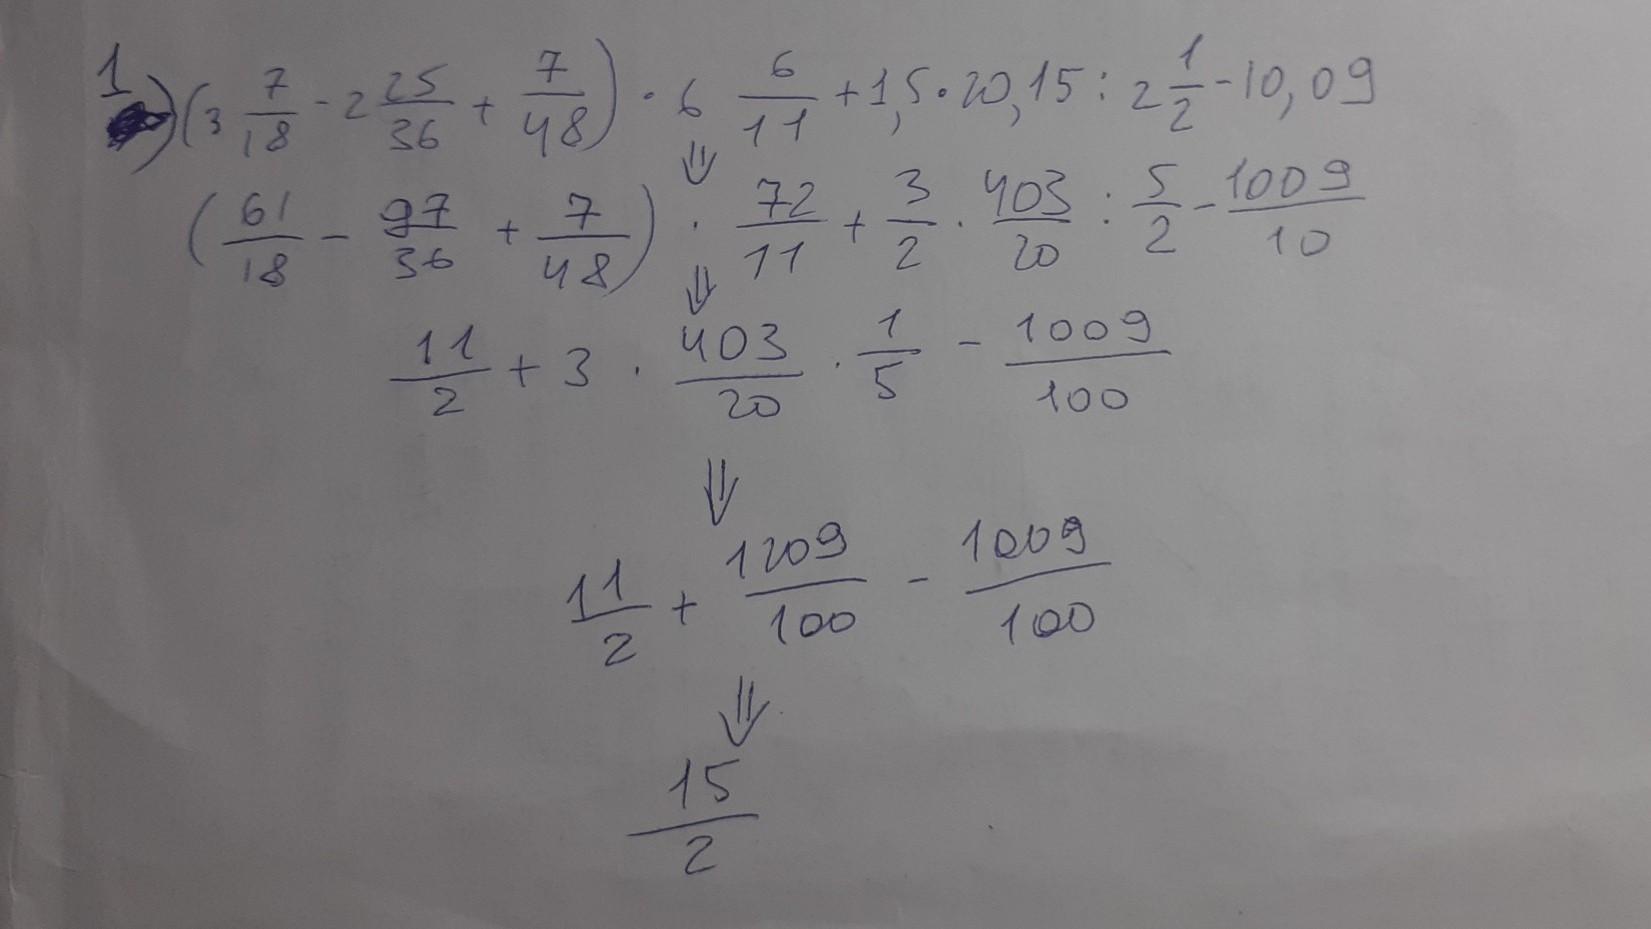 1) (3 7/18 - 2 25/36 + 7/48) · 6 6/11 + 1,5 · 20,15 : 2 1/2 - 10,09
⇓
(61/18 - 97/36 + 7/48) · 72/11 + 3/2 · 403/20 : 5/2 - 1009/10
⇓
11/2 + 3 · 403/20 · 1/5 - 1009/100
⇓
11/2 + 1209/100 - 1009/100
⇓
15/2